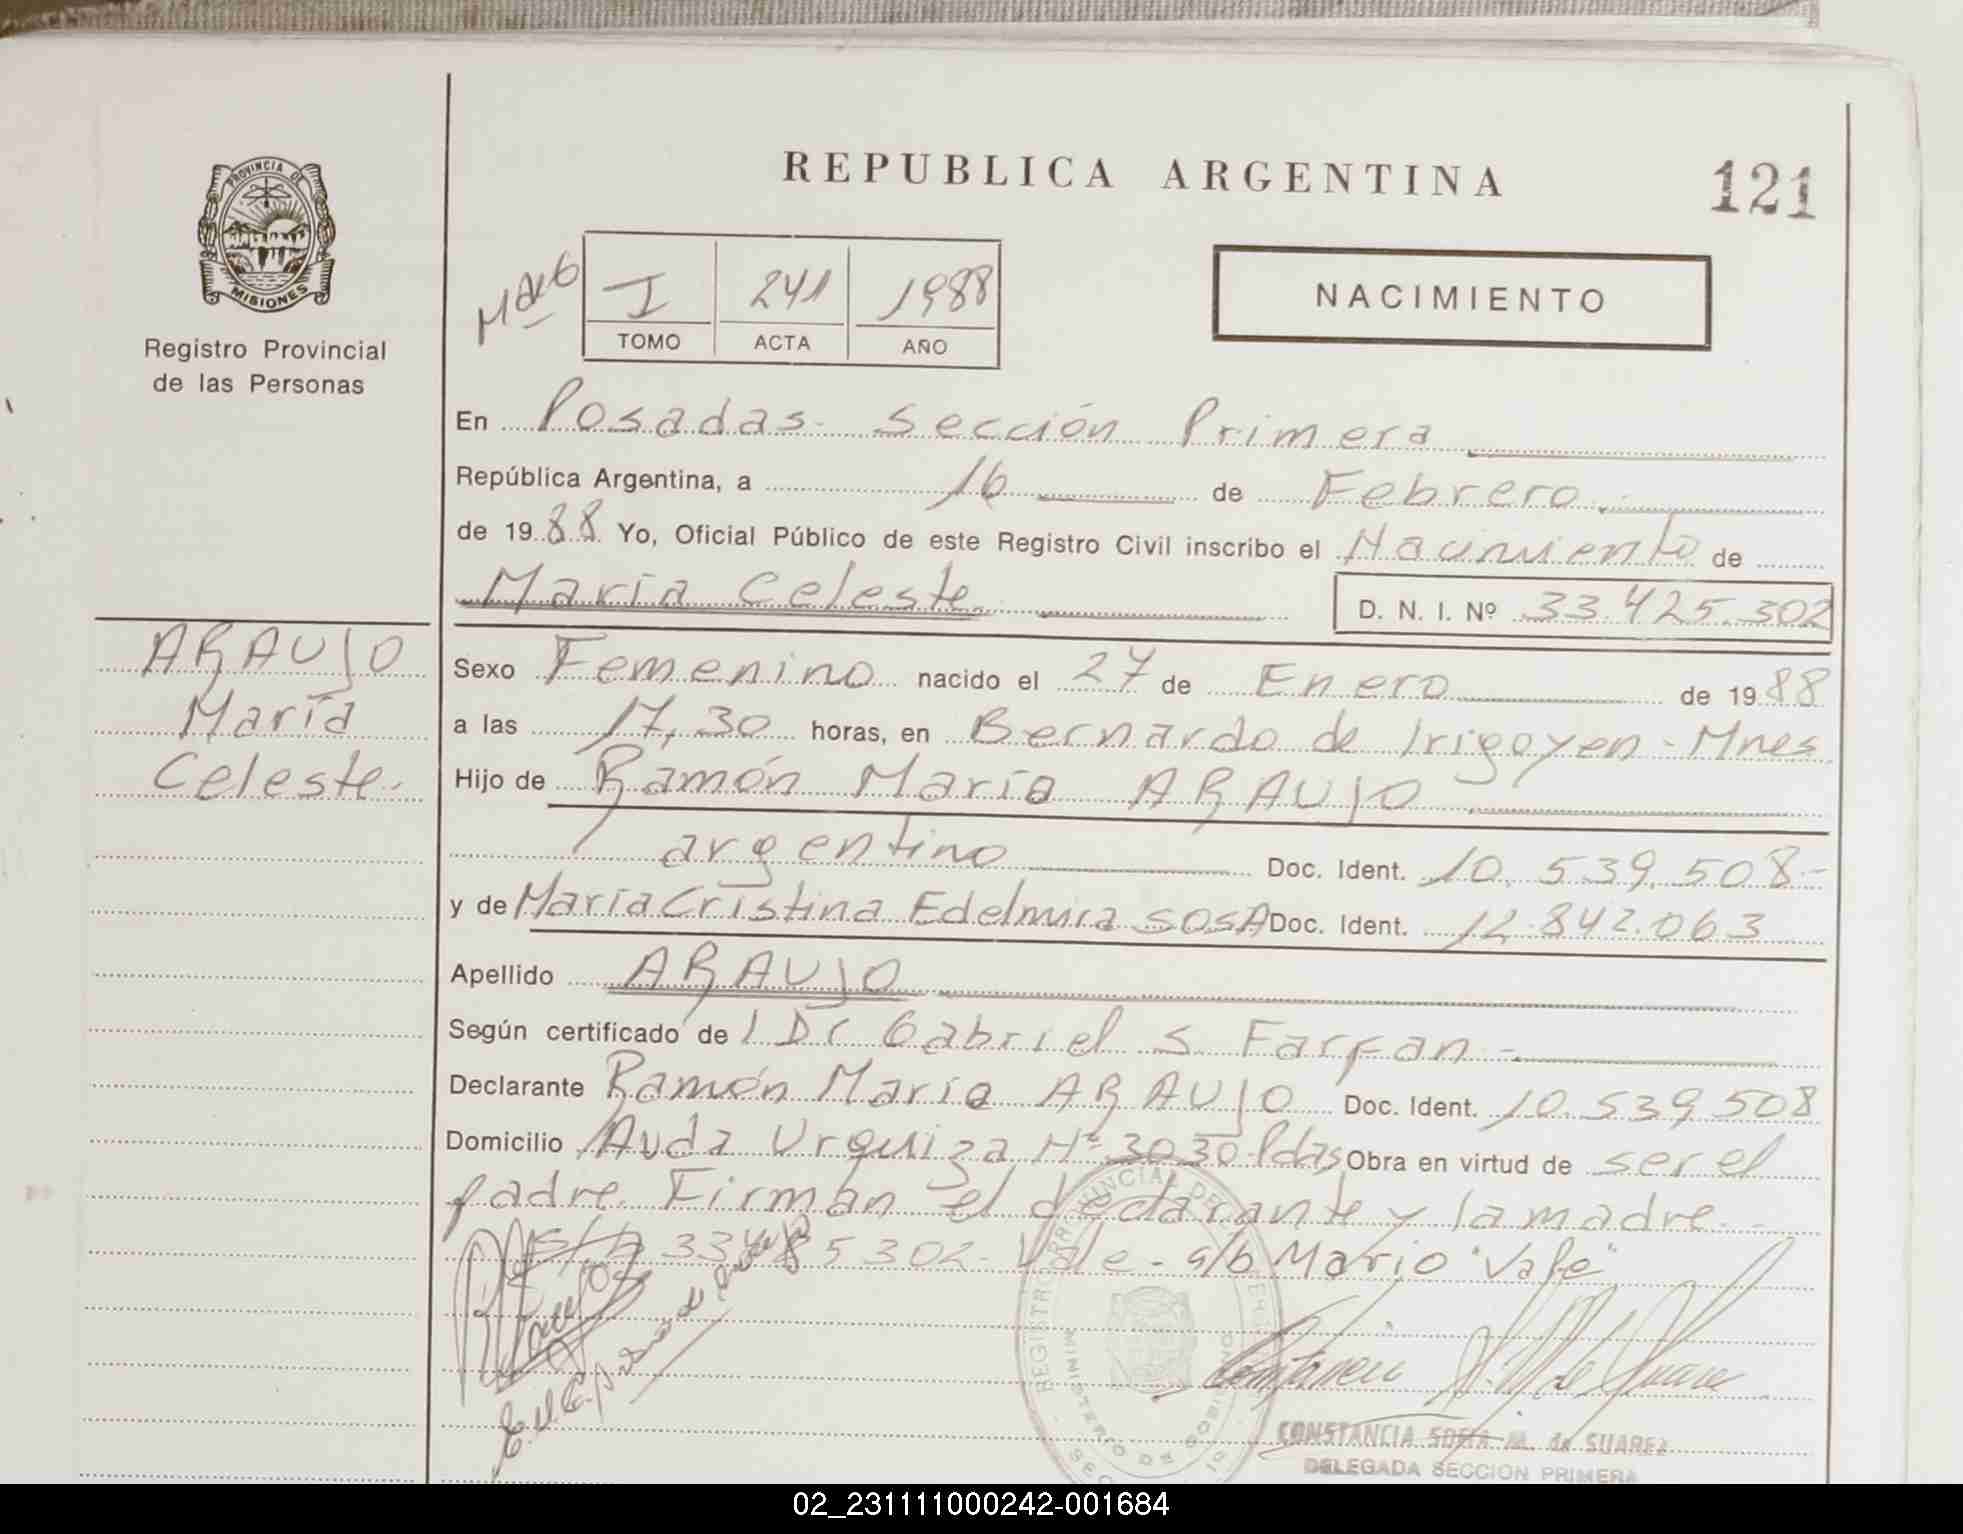 REPUBLICA ARGENTINA
121
PROVINCIA DE
MISIONES
Registro Provincial
de las Personas
I 241 1988
TOMO ACTA AÑO
NACIMIENTO
En Posadas - Sección Primera
República Argentina, a 16 de Febrero
de 1988 Yo, Oficial Público de este Registro Civil inscribo el Nacimiento de
María Celeste
D. N. I. Nº 33.425.302
ARAUJO
María
Celeste.-
Sexo Femenino nacido el 27 de Enero de 1988
a las 17,30 horas, en Bernardo de Irigoyen - Mnes
Hijo de Ramón María ARAUJO
argentino Doc. Ident. 10.539.508-
y de María Cristina Edelmira SOSA Doc. Ident. 12.842.063
Apellido ARAUJO
Según certificado de l Dr Gabriel S Farfan -
Declarante Ramón María ARAUJO Doc. Ident. 10.539.508
Domicilio Avda Urquiza Nº 3030 Pdas Obra en virtud de ser el
padre. Firman el declarante y la madre.
Vale - s/b Mario "Vale"
CONSTANCIA SOFIA M. de SUAREZ
DELEGADA SECCION PRIMERA
02_231111000242-001684